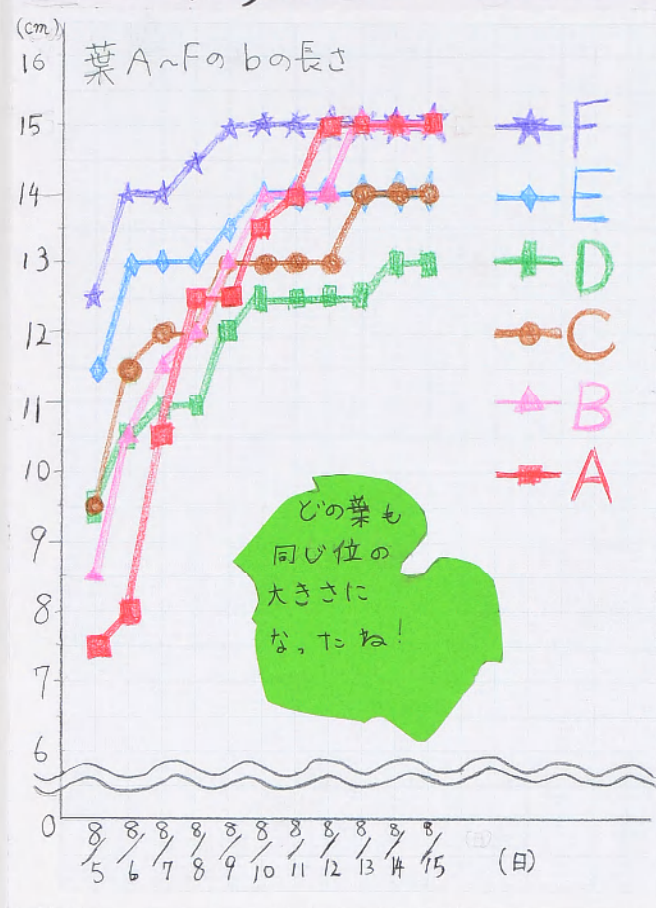 (cm)
葉A〜Fのbの長さ
16
15
14
13
12
11
10
9
8
7
6
0
F
E
D
C
B
A
どの葉も
同じ位の
大きさに
なったね!
8/5 8/6 8/7 8/8 8/9 8/10 8/11 8/12 8/13 8/14 8/15 (日)